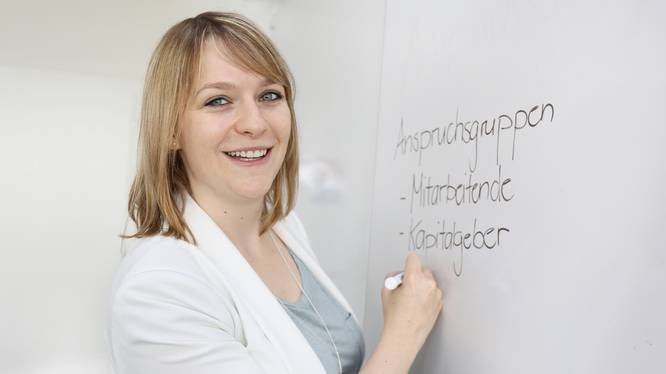 Anspruchsgruppen
- Mitarbeitende
- Kapitalgeber